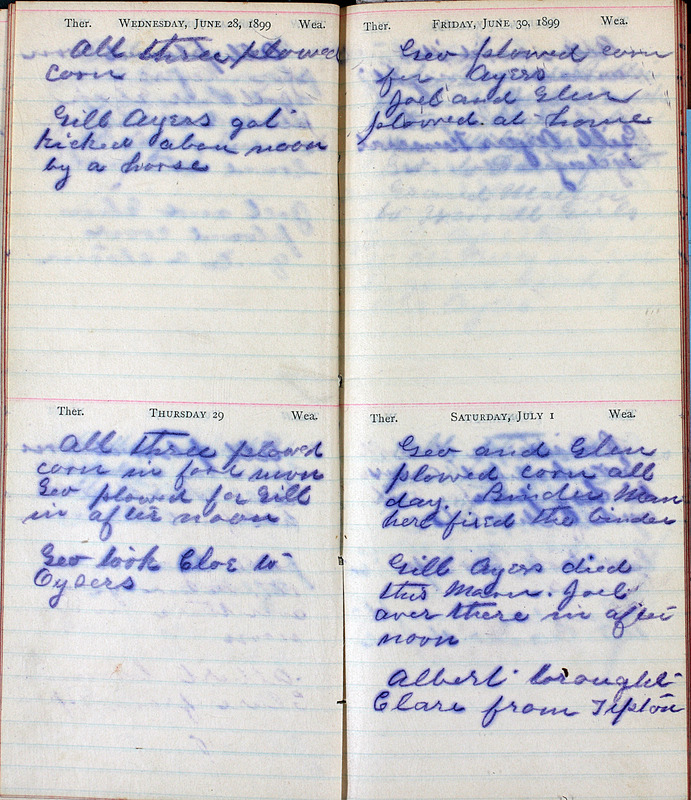 Ther. WEDNESDAY, JUNE 28, 1899 Wea.
All three plowed
corn
Gill Ayers got
kicked about noon
by a horse
Ther. THURSDAY 29 Wea.
All three plowed
corn in fore noon
Geo plowed for Gill
in after noon
Geo took Cloe to
Ther. FRIDAY, JUNE 30, 1899 Wea.
Geo plowed corn
for Ayers
Joel and Glen
plowed at home
Ther. SATURDAY, JULY 1 Wea.
Geo and Glen
plowed corn all
day. Binder Man
here fixed the binder
Gill Ayers died
this Morn. Joel
over there in after
noon
Albert brought
Clare from Tipton